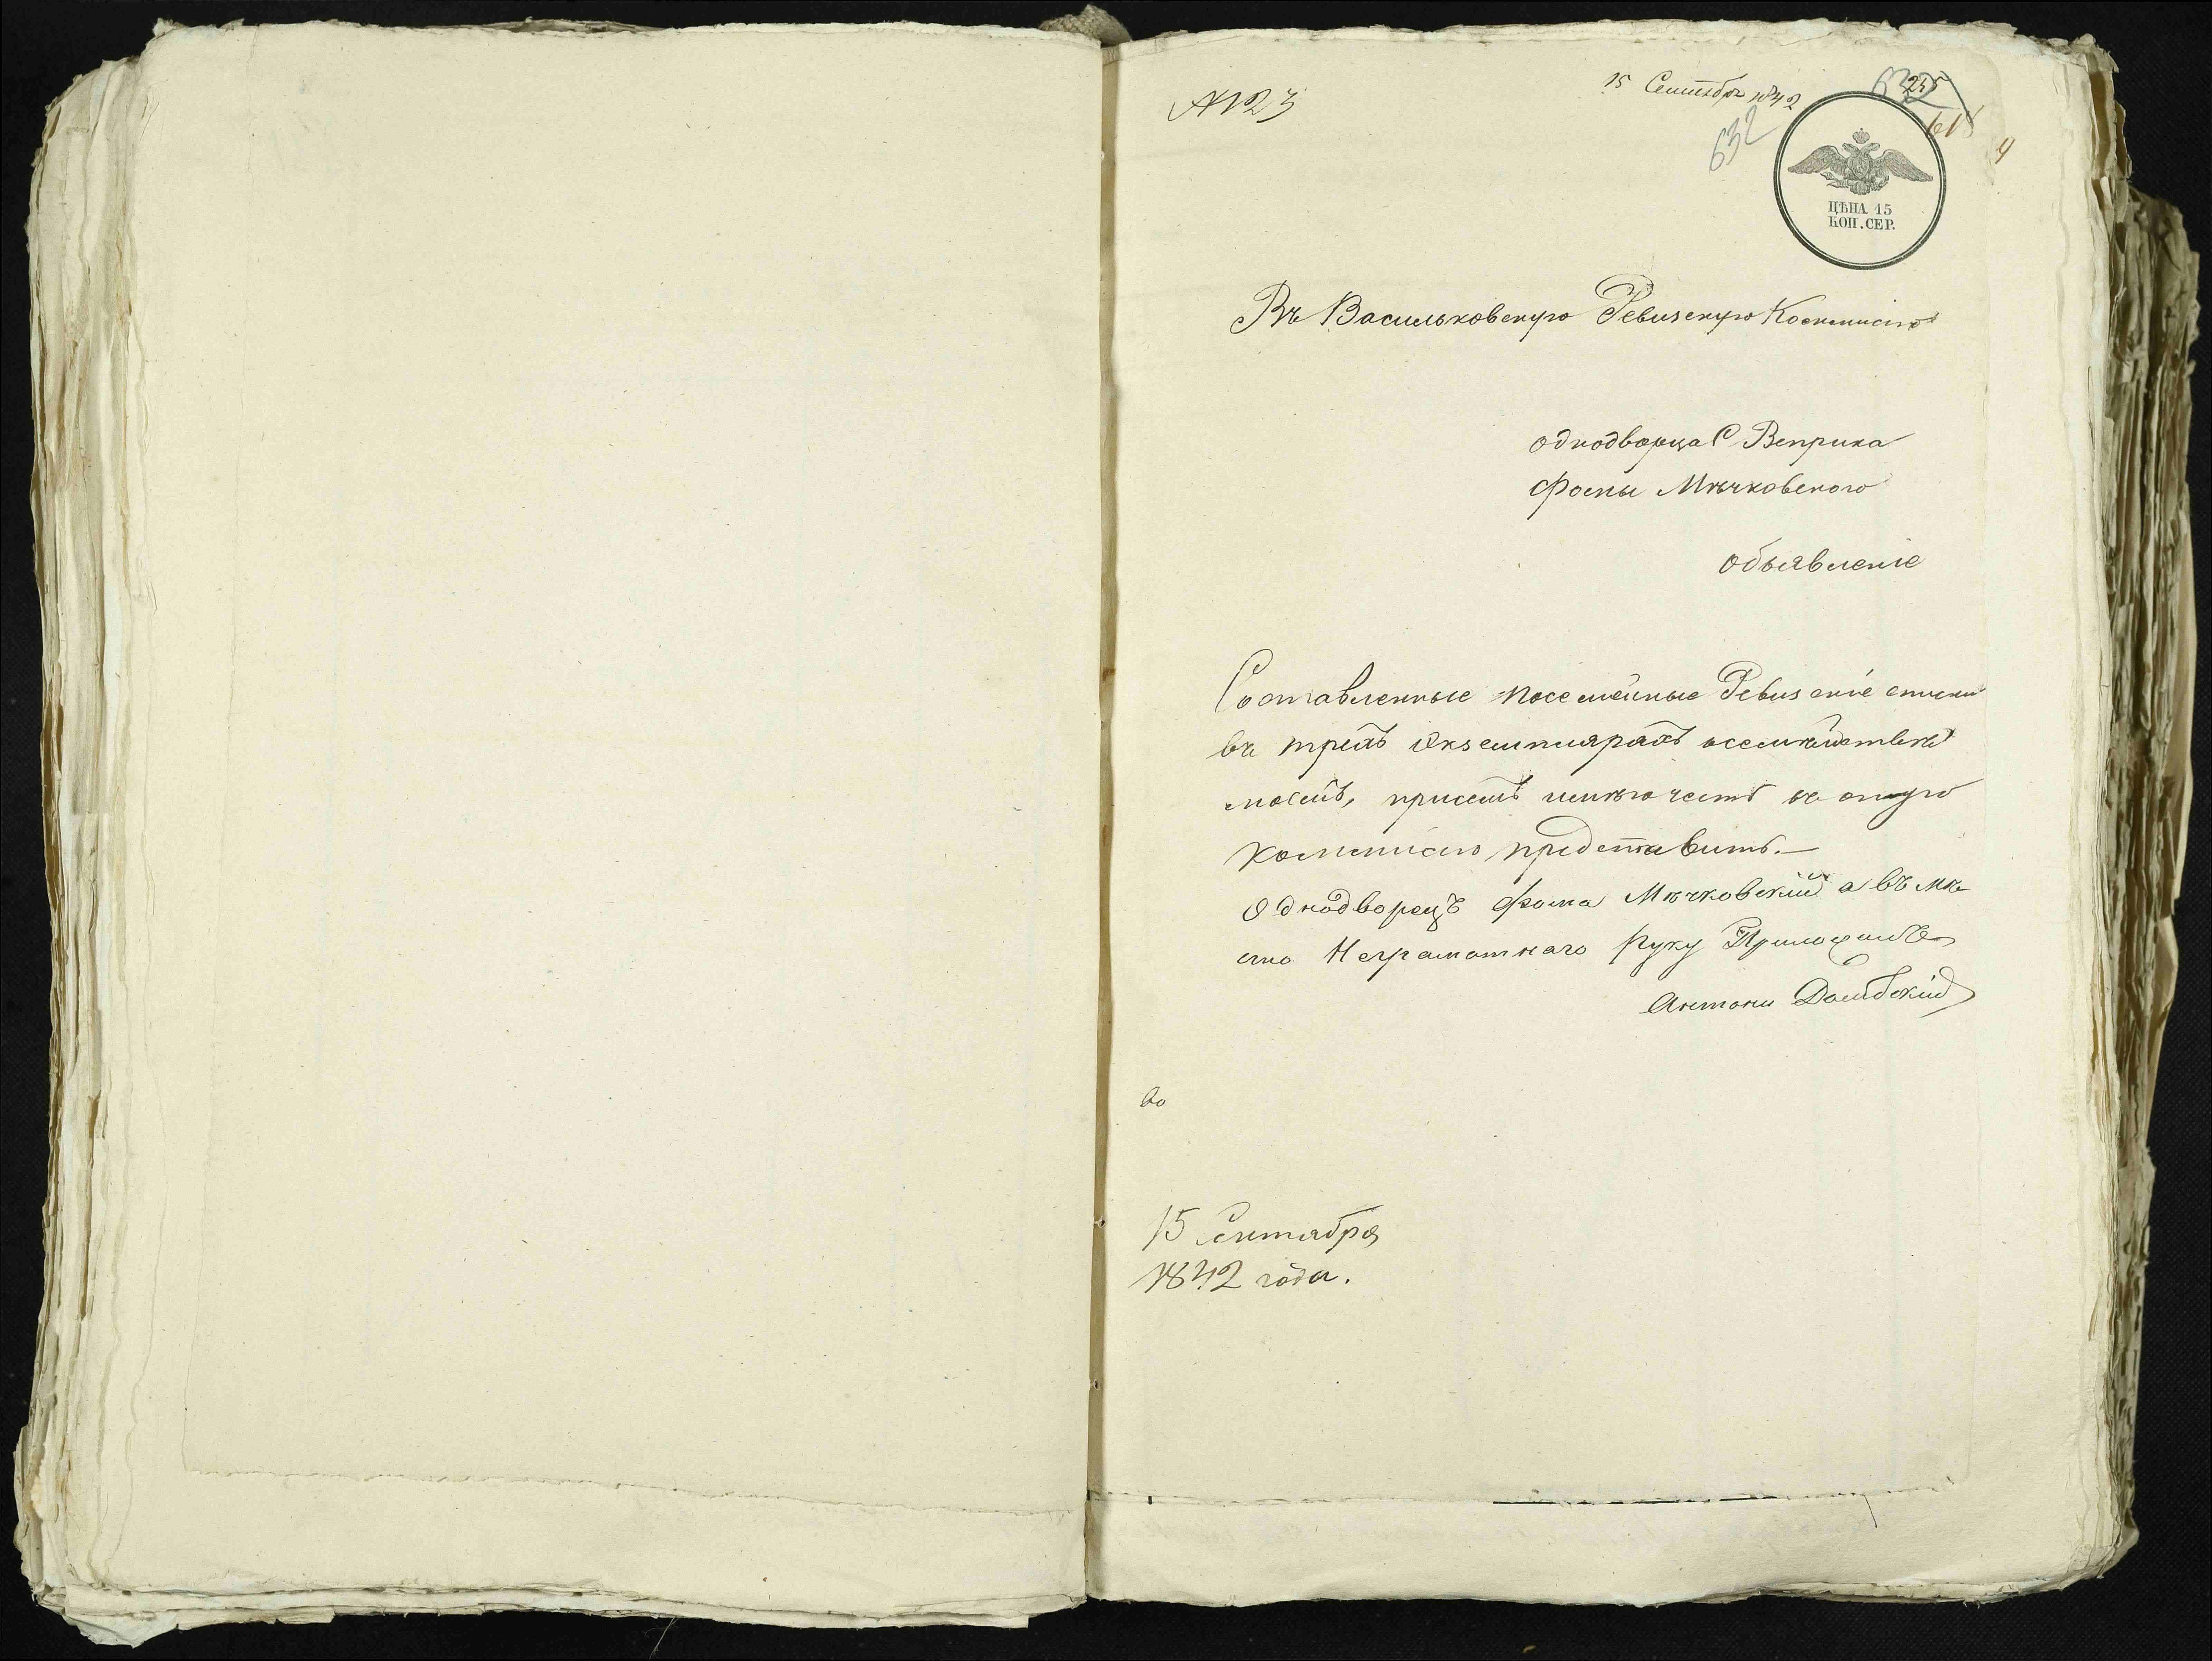 № 123
15 Сентября 1842
632
ЦѢНА 15
КОП. СЕР.
Въ Васильковскую Ревизскую Коммисію
однодворца С Веприка
Фомы Мѣчковского
Объявленіе
Составленные посемейные Ревизскіе списки
въ трехъ экземплярахъ осемѣйствѣ
моемъ, присемъ имѣю честь въ оную
коммисію представить.—
Однодворецъ Фома Мѣчковскій а въ мѣ
сто Неграмотнаго Руку Приложилъ
Антони Домбскій
во
15 Сентября
1842 года.